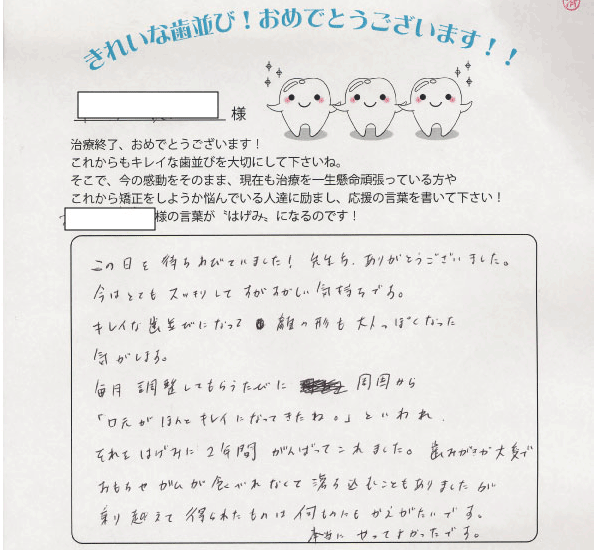 きれいな歯並び！おめでとうございます！！
様
治療終了、おめでとうございます！
これからもキレイな歯並びを大切にして下さいね。
そこで、今の感動をそのまま、現在も治療を一生懸命頑張っている方や
これから矯正をしようか悩んでいる人達に励まし、応援の言葉を書いて下さい！
様の言葉が〝はげみ〟になるのです！
この日を待ちわびていました！先生方、ありがとうございました。
今はとてもスッキリしてすがすがしい気持ちです。
キレイな歯並びになって の形も大人っぽくなった
気がします。
毎月調整してもらうたびに 周囲から
「口元がほんとキレイになってきたね。」といわれ
それをはげみに2年間がんばってこれました。歯みがきが大変で
おもちやガムが食べれなくて落ち込むこともありましたが
乗り越えて得られたものは何ものにもかえがたいです。
本当にやってよかったです。